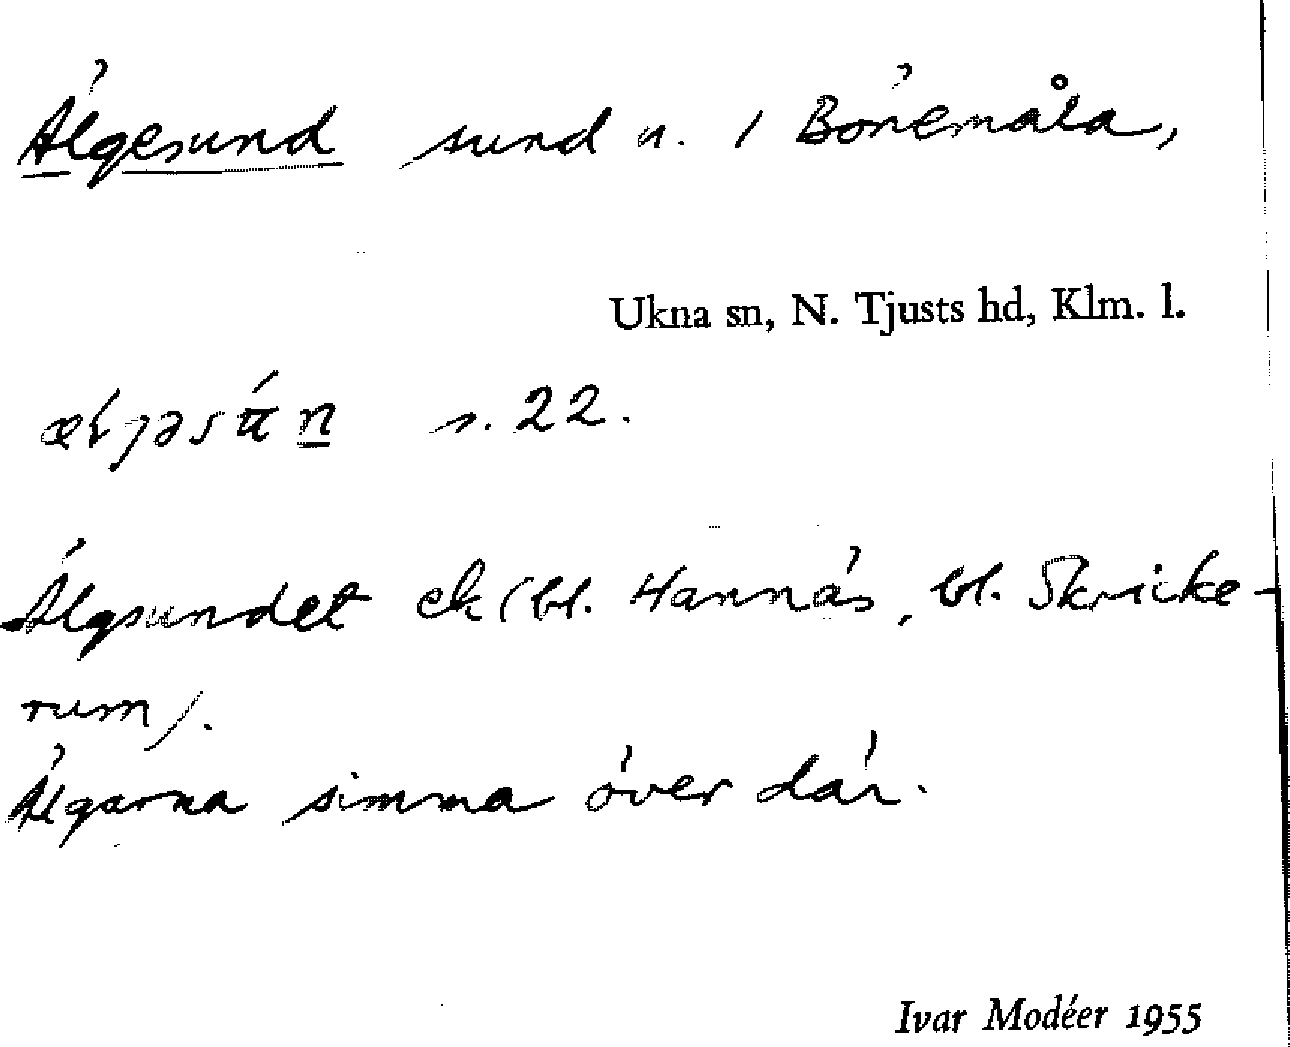 Älgesund sund n. / Bönemåla,
Ukna sn, N. Tjusts hd, Klm. l.
s. 22.
Älgsundet ek (bl. Hannäs, bl. Skricke-
rum).
Älgarna simma över där.
Ivar Modéer 1955